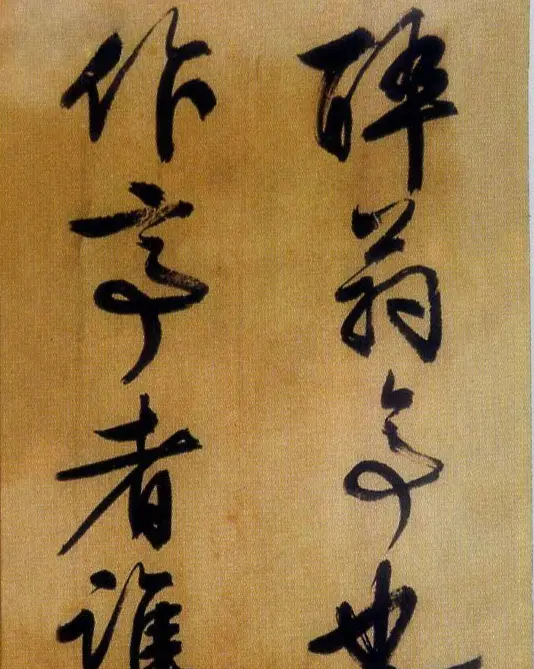 醉翁亭也
作亭者誰